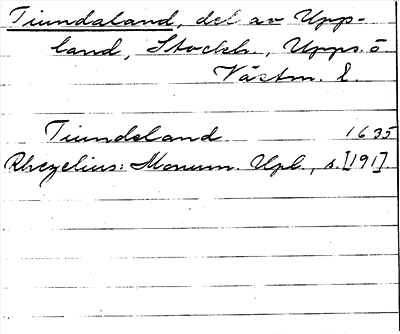 Tiundaland, del av Upp-
land, Stockh., Upps. o.
Västm. l.
Tiundeland 1635
Rhezelius: Monum. Upl., s. [191]